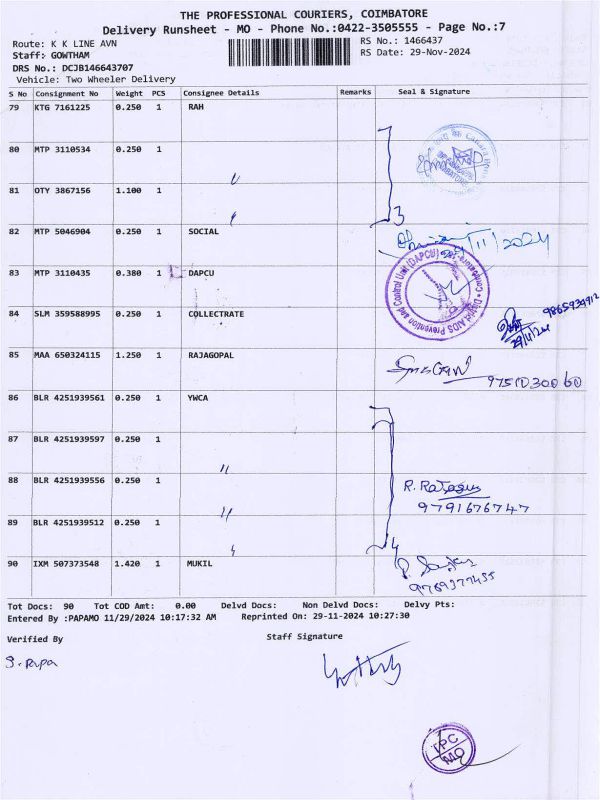 THE PROFESSIONAL COURIERS, COIMBATORE
Delivery Runsheet - MO - Phone No.:0422-3505555 - Page No.:7
Route: K K LINE AVN
RS No.: 1466437
Staff: GOWTHAM
RS Date: 29-Nov-2024
DRS No.: DCJB1466643707
Vehicle: Two Wheeler Delivery
S No Consignment No Weight PCS Consignee Details Remarks Seal & Signature
79 KTG 7161225 0.250 1 RAH
80 MTP 3110534 0.250 1 "
81 OTY 3867156 1.100 1 "
3
82 MTP 5046904 0.250 1 SOCIAL
11/2024
83 MTP 3110435 0.380 1 DAPCU
District AIDS Prevention and Control Unit (DAPCU)
84 SLM 359588995 0.250 1 COLLECTRATE
29/11/24
85 MAA 650324115 1.250 1 RAJAGOPAL
86 BLR 4251939561 0.250 1 YWCA
87 BLR 4251939597 0.250 1 "
88 BLR 4251939556 0.250 1 "
R. Rajasus
9791676747
89 BLR 4251939512 0.250 1 "
4
90 IXM 507373548 1.420 1 MUKIL
Tot Docs: 90 Tot COD Amt: 0.00 Delvd Docs: Non Delvd Docs: Delvy Pts:
Entered By :PAPAMO 11/29/2024 10:17:32 AM Reprinted On: 29-11-2024 10:27:30
Verified By
Staff Signature
TPC
MO